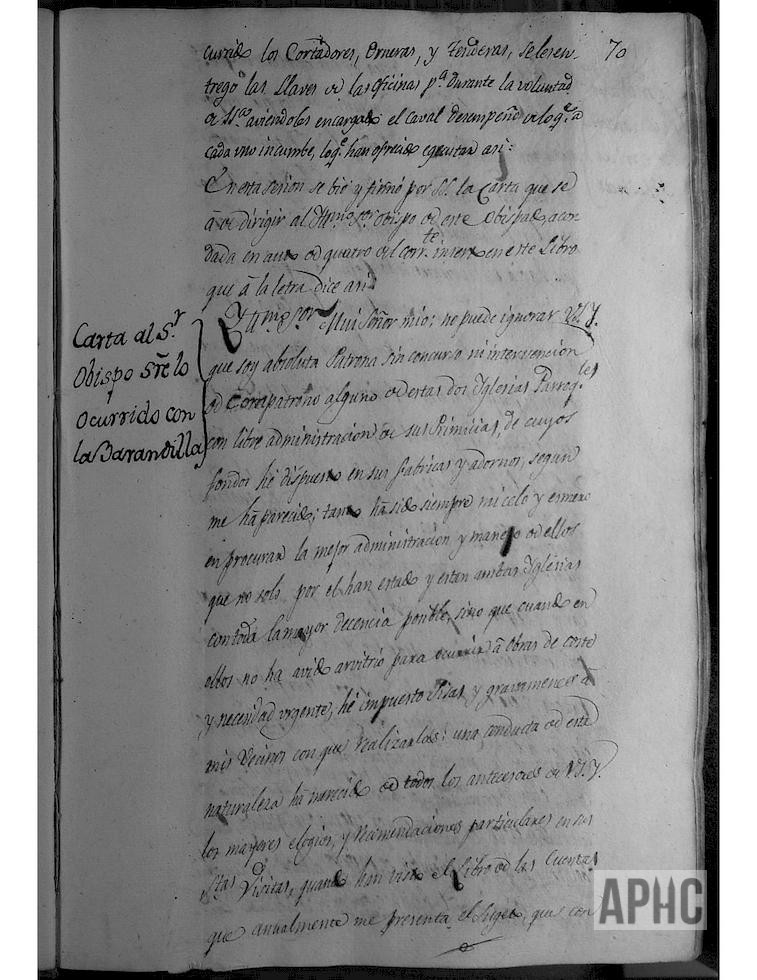 70
currido los Cortadores, Orneras, y Tenderas, se les en-
tregó las Llaves de las oficinas p.ª durante la voluntad
de SS.as aviendoles encargado el caval desempeño de lo q.e a
cada uno incumbe, lo q.e han ofrecido egecutar asi:
En esta sesion se bió y firmó por SS. la Carta que se
á de dirigir al Yll.mo S.or Obispo de este Obispado, acor-
dada en auto de quatro del corr.te inserto en este Libro
que á la letra dice asi:
Carta al S.r
Obispo S̃re lo
Ocurrido con
la Barandilla
Yll.mo S.or Mui Señor mio: no puede ignorar V.S.Y.
que soy absoluta Patrona sin concurso ni intervencion
de Compatrono alguno de estas dos Yglesias Parroq.les
con libre administracion de sus Primicias, de cuyos
fondos hé dispuesto en sus fabricas y adornos, segun
me há parecido; tanto há sido siempre mi celo y esmero
en procurar la mejor administracion y manejo de ellos
que no solo por el han estado y estan ambas Yglesias
con toda la mayor decencia posible, sino que cuando en
ellos no ha avido arvitrio para ocurrir á obras de coste
y necesidad urgente, hé impuesto Sisas y gravamenes á
mis Vecinos con que realizarlas: una conducta de esta
naturaleza há merecido de todos los antecesores de V.S.Y.
los mayores elogios, y recomendaciones particulares en sus
S.tas Visitas, quando han visto el Libro de las Cuentas
que anualmente me presenta el Sugeto, que con
APHC